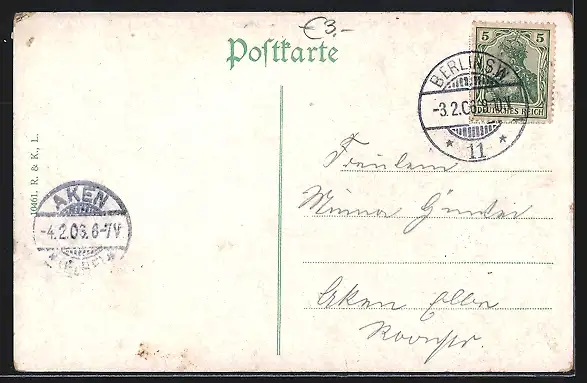 €3,-
Postkarte
5 5
DEUTSCHES REICH
BERLIN S.W.
-3.2.06.8-9N
* 11 *
10461, R. & K., L.
AKEN
-4.2.06.6-7V
* (ELBE) *
Fräulein
Minna Günther
Aken Elbe